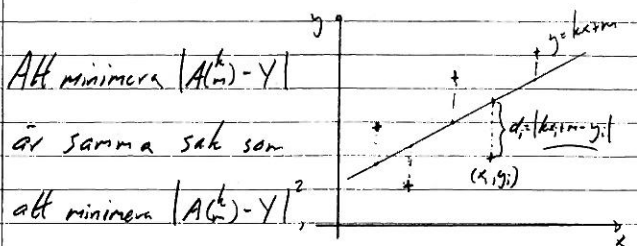 Att minimera |A(k m) - Y|
är samma sak som
att minimera |A(k m) - Y|²,
y
y=kx+m
dᵢ=|kxᵢ+m-yᵢ|
(xᵢ,yᵢ)
x